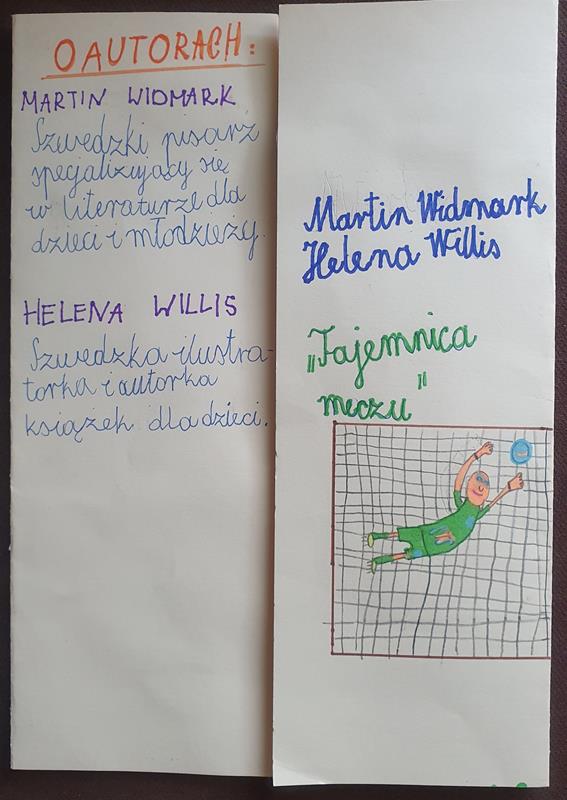 O AUTORACH:
MARTIN WIDMARK
Szwedzki pisarz
specjalizujący się
w literaturze dla
dzieci i młodzieży.
HELENA WILLIS
Szwedzka ilustra-
torka i autorka
książek dla dzieci.
Martin Widmark
Helena Willis
„Tajemnica
meczu"